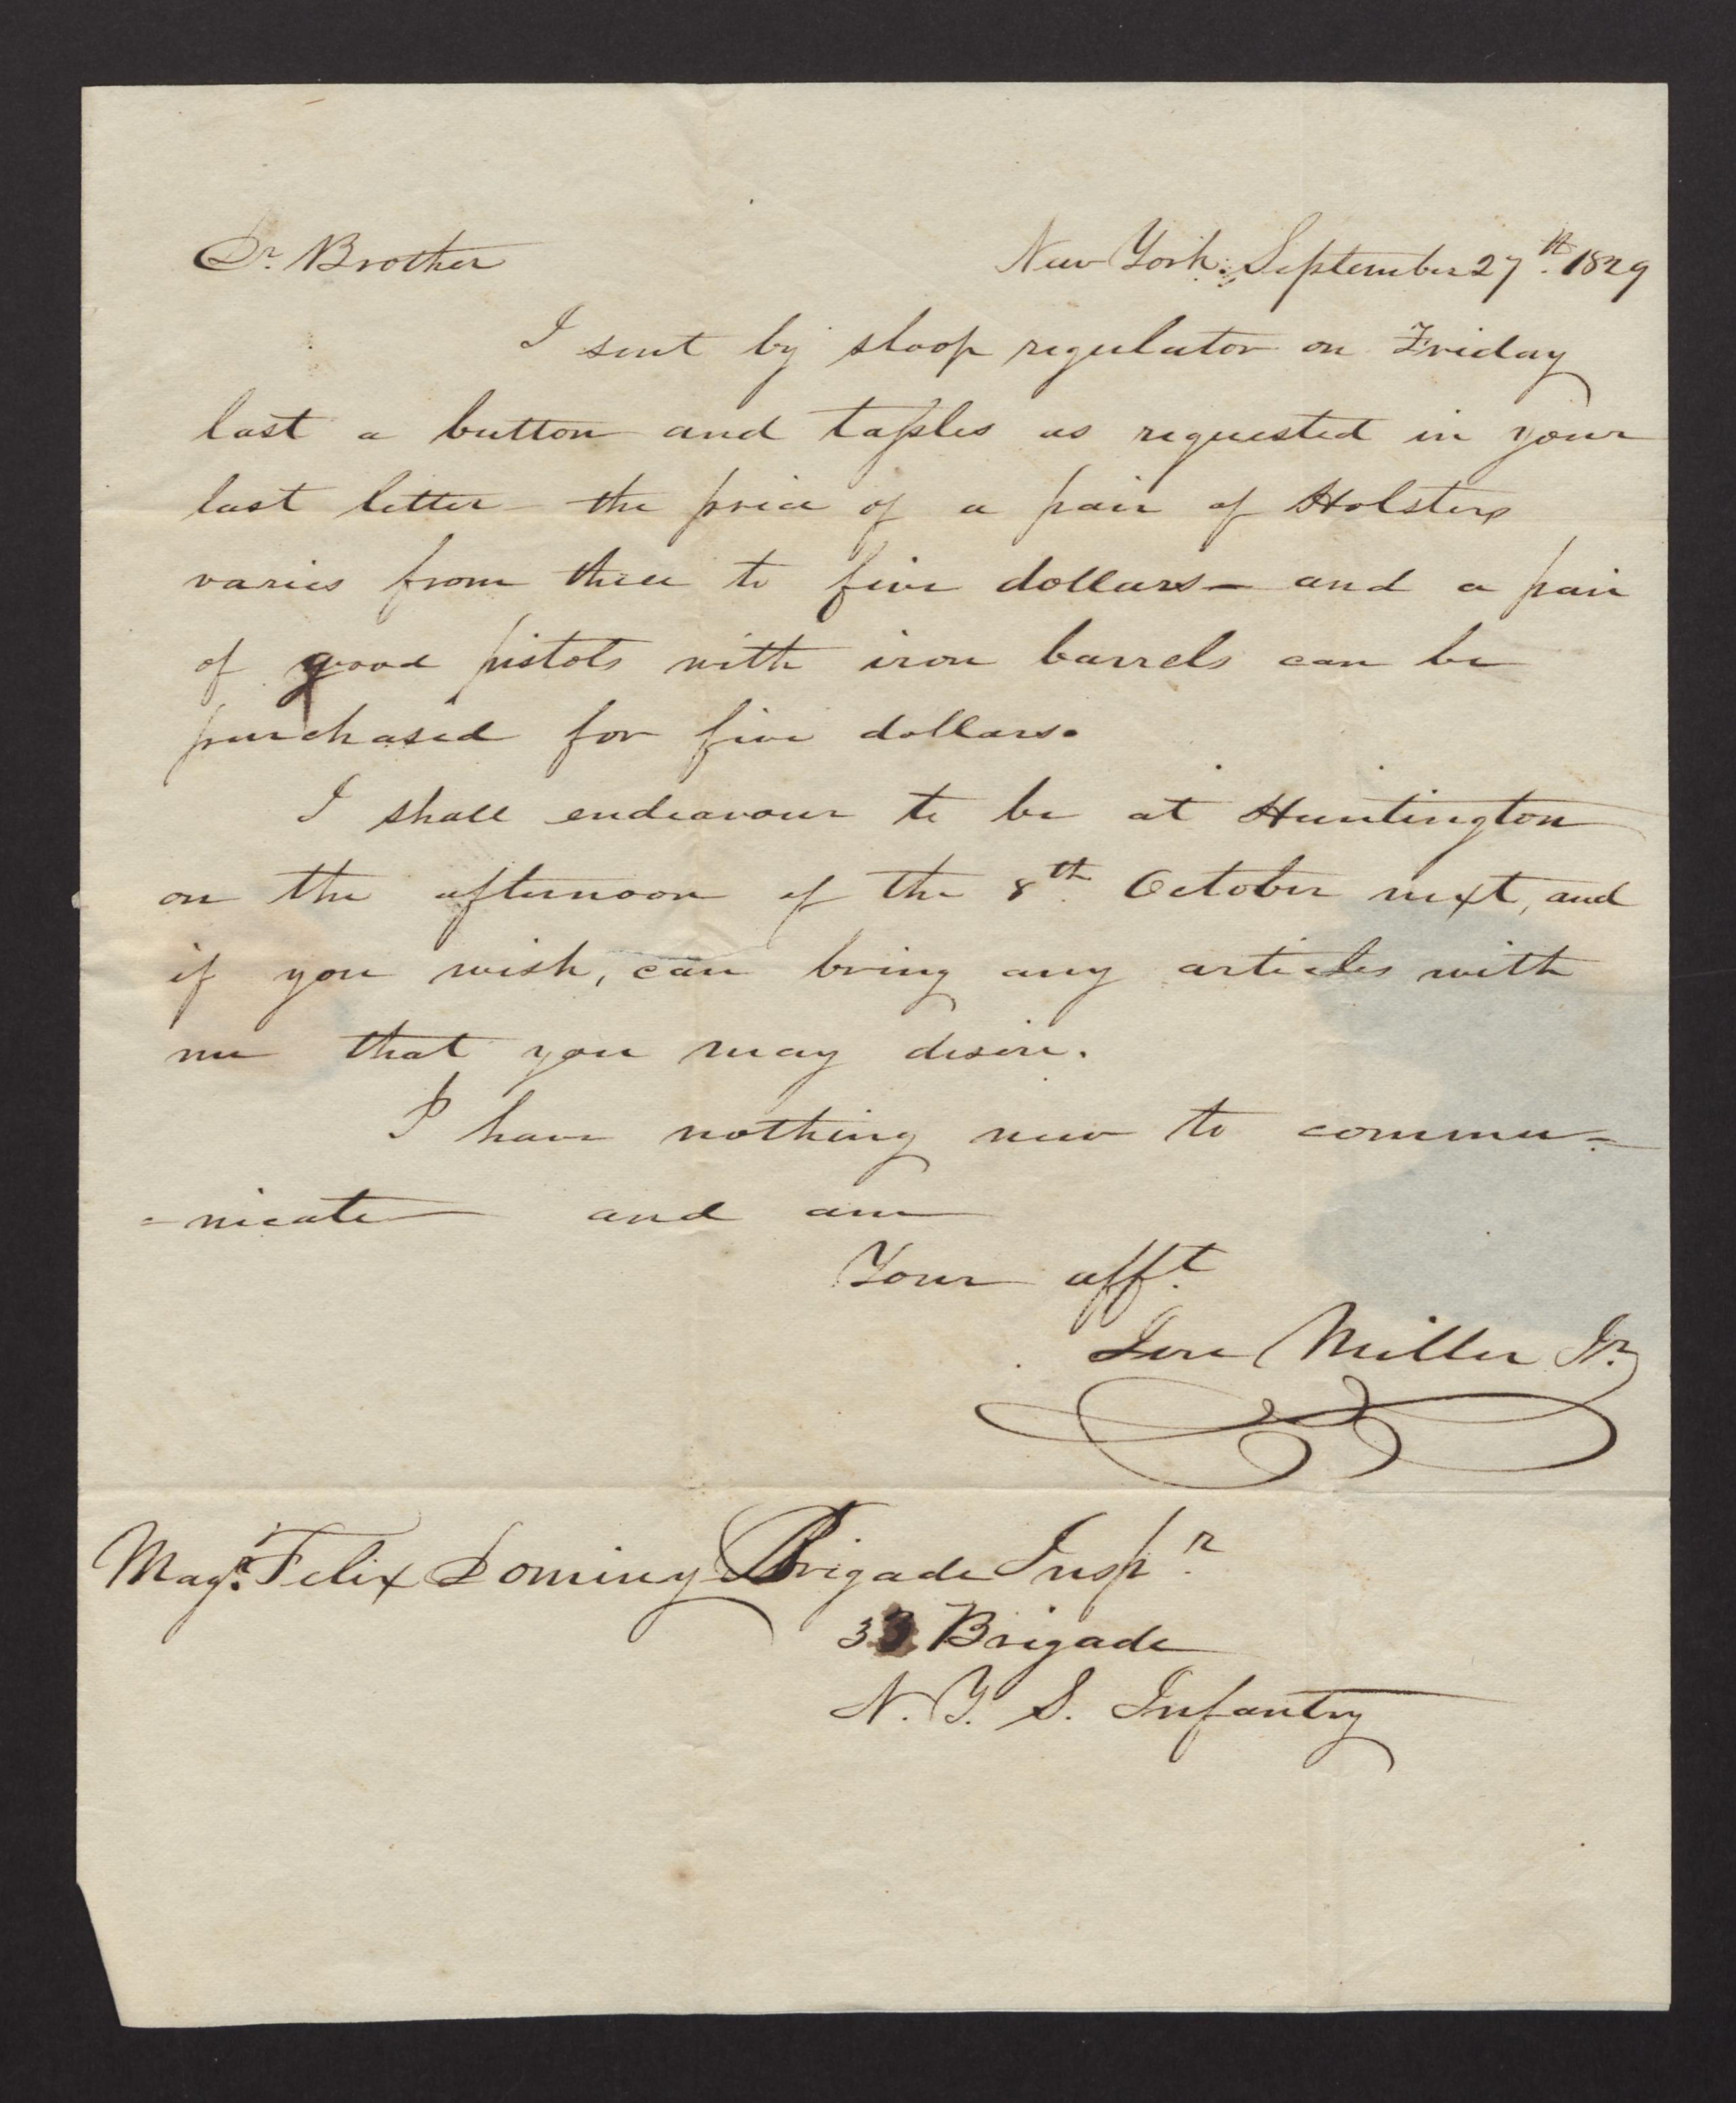 Dr. Brother New York. September 27th. 1829
I sent by sloop regulator on Friday
last a button and taſsles as requested in your
last letter - the price of a pair of Holsters
varies from three to five dollars - and a pair
of good pistols with iron barrels can be
purchased for five dollars.
I shall endeavour to be at Huntington
on the afternoon of the 8th. October next, and
if you wish, can bring any articles with
me that you may desire.
I have nothing new to commu=
=nicate and am
Your afft.
Jere Miller Jr.
Majr. Felix Dominy Brigade Inspr.
33 Brigade
N. Y. S. Infantry